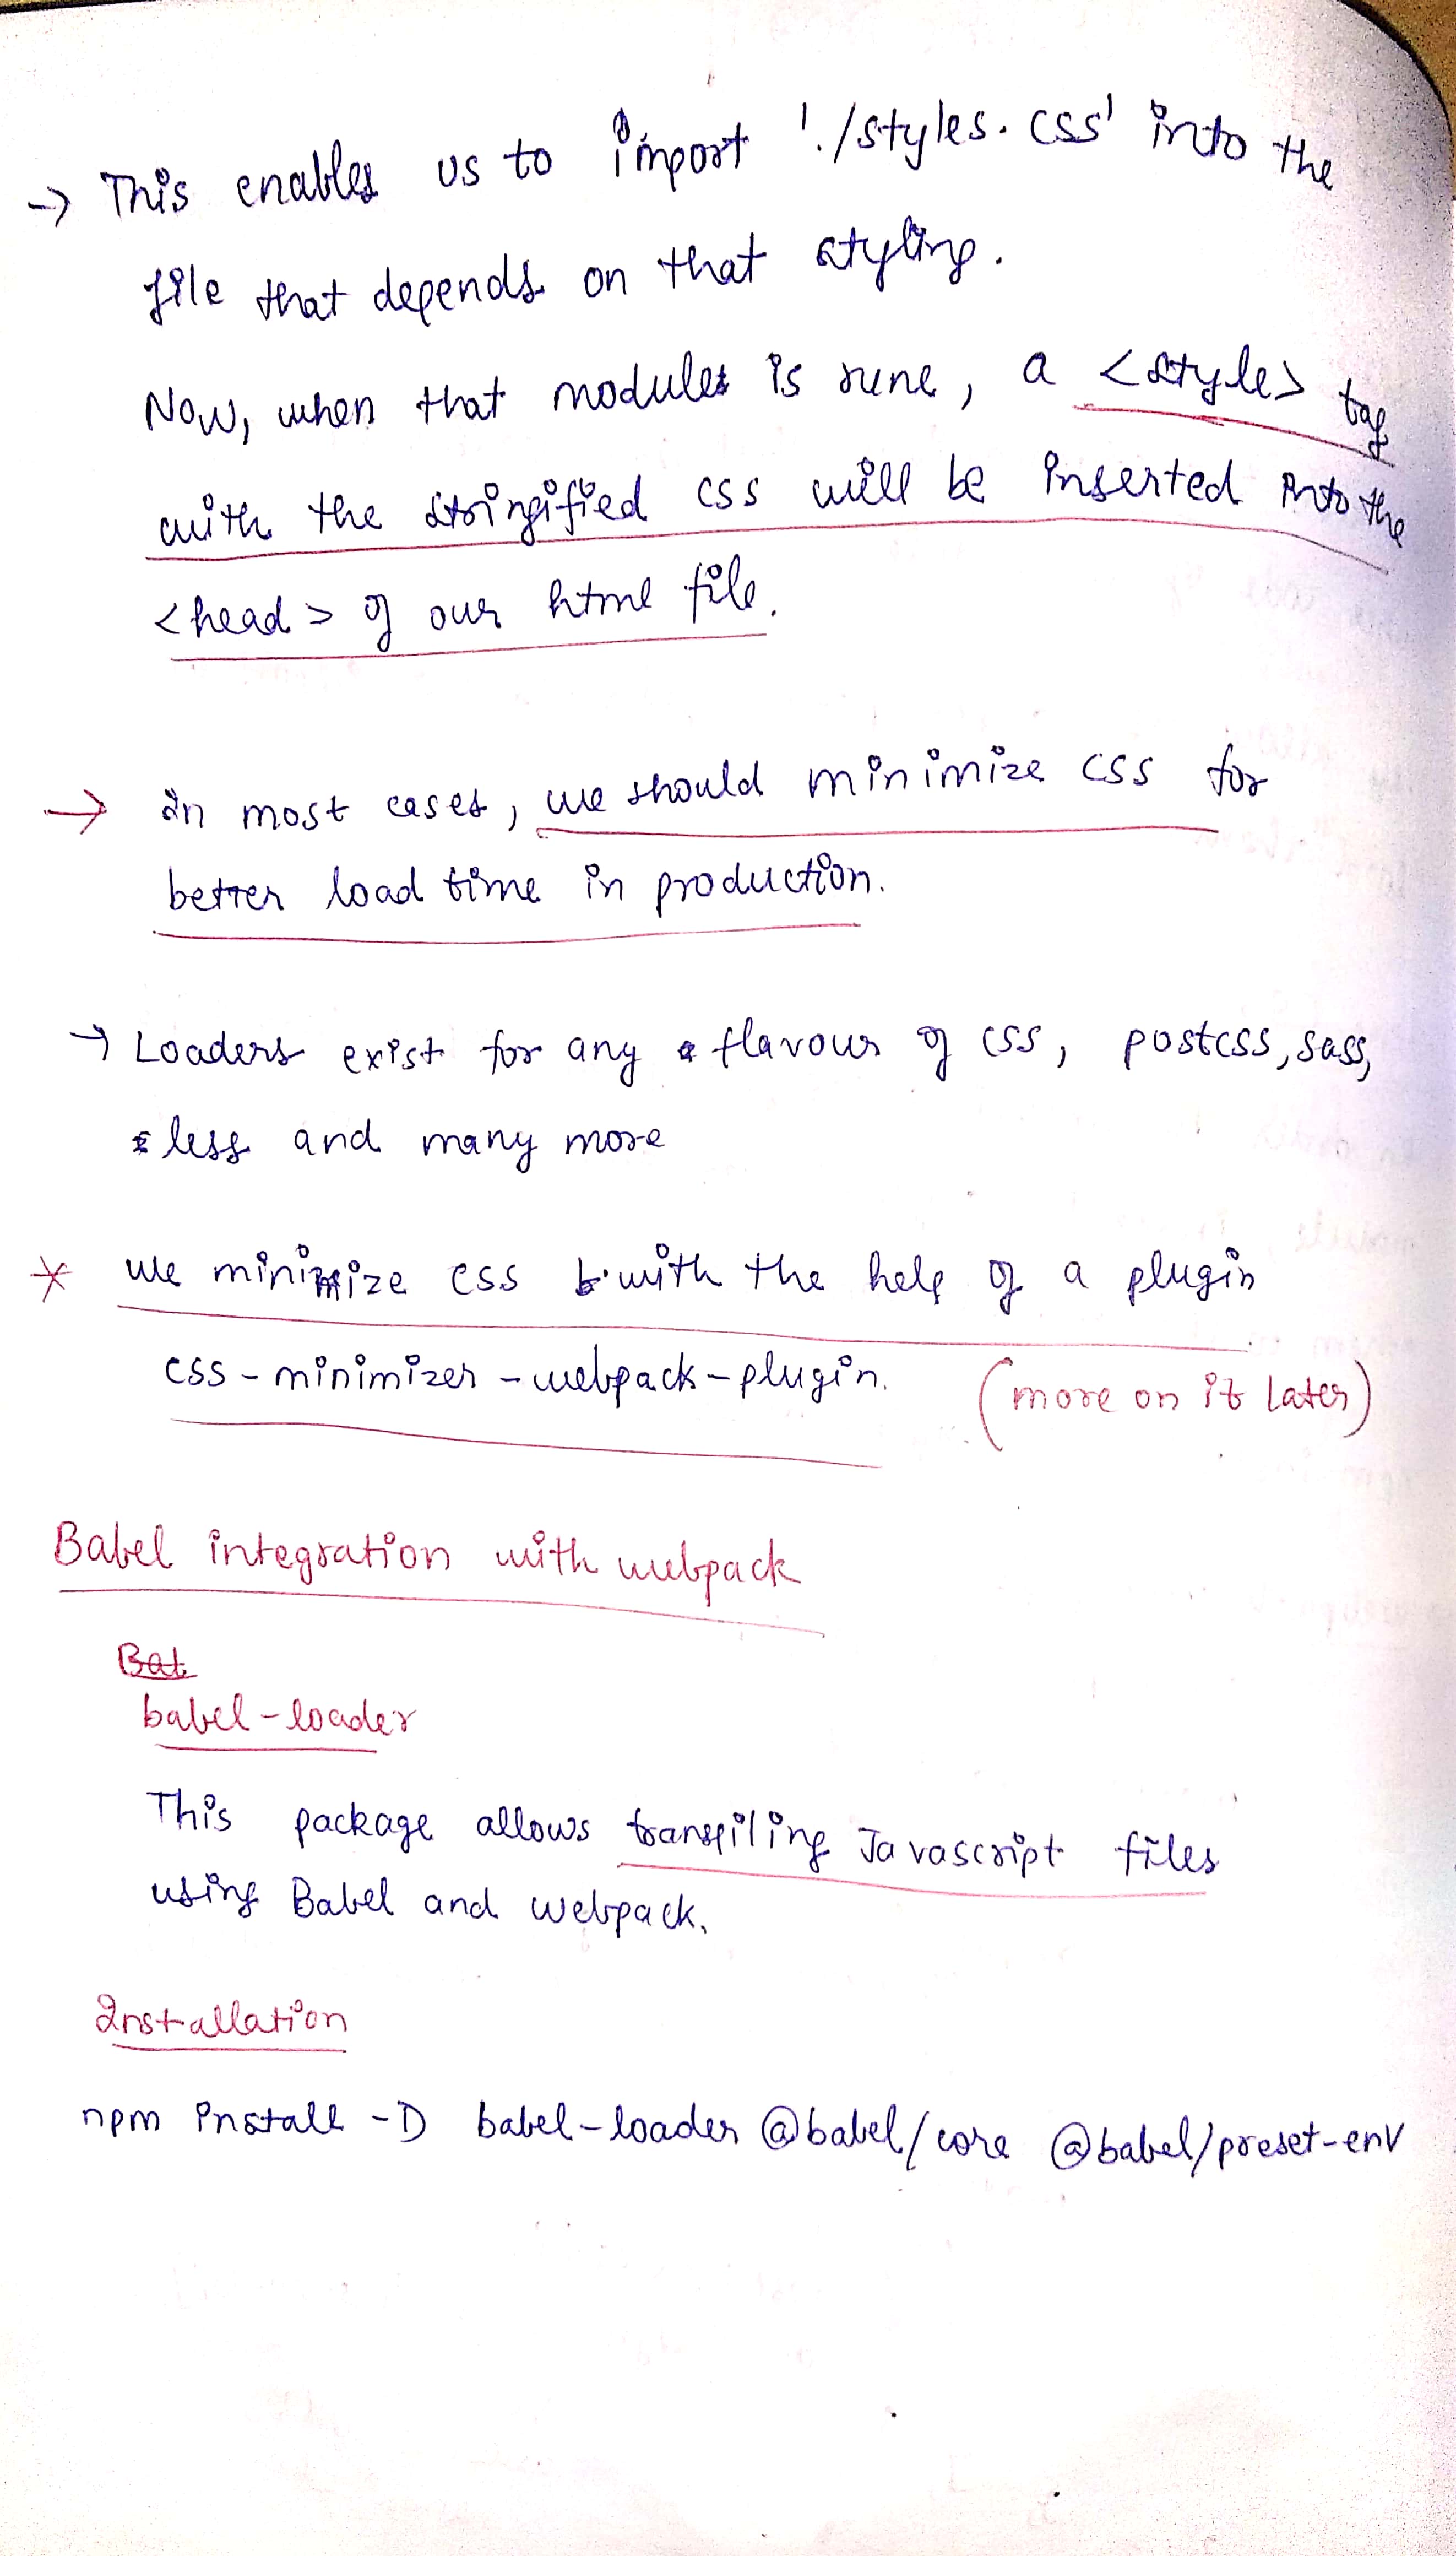 → This enables us to import './styles.css' into the
file that depends on that styling.
Now, when that modules is rune, a <style> tag
with the stringified css will be inserted into the
<head> of our html file.
→ In most cases, we should minimize css for
better load time in production.
→ Loaders exist for any flavour of css, postcss, sass,
less and many more
* We minimize css with the help of a plugin
css-minimizer-webpack-plugin. (more on it later)
Babel integration with webpack
Bat
babel-loader
This package allows transpiling Javascript files
using Babel and webpack.
Installation
npm install -D babel-loader @babel/core @babel/preset-env